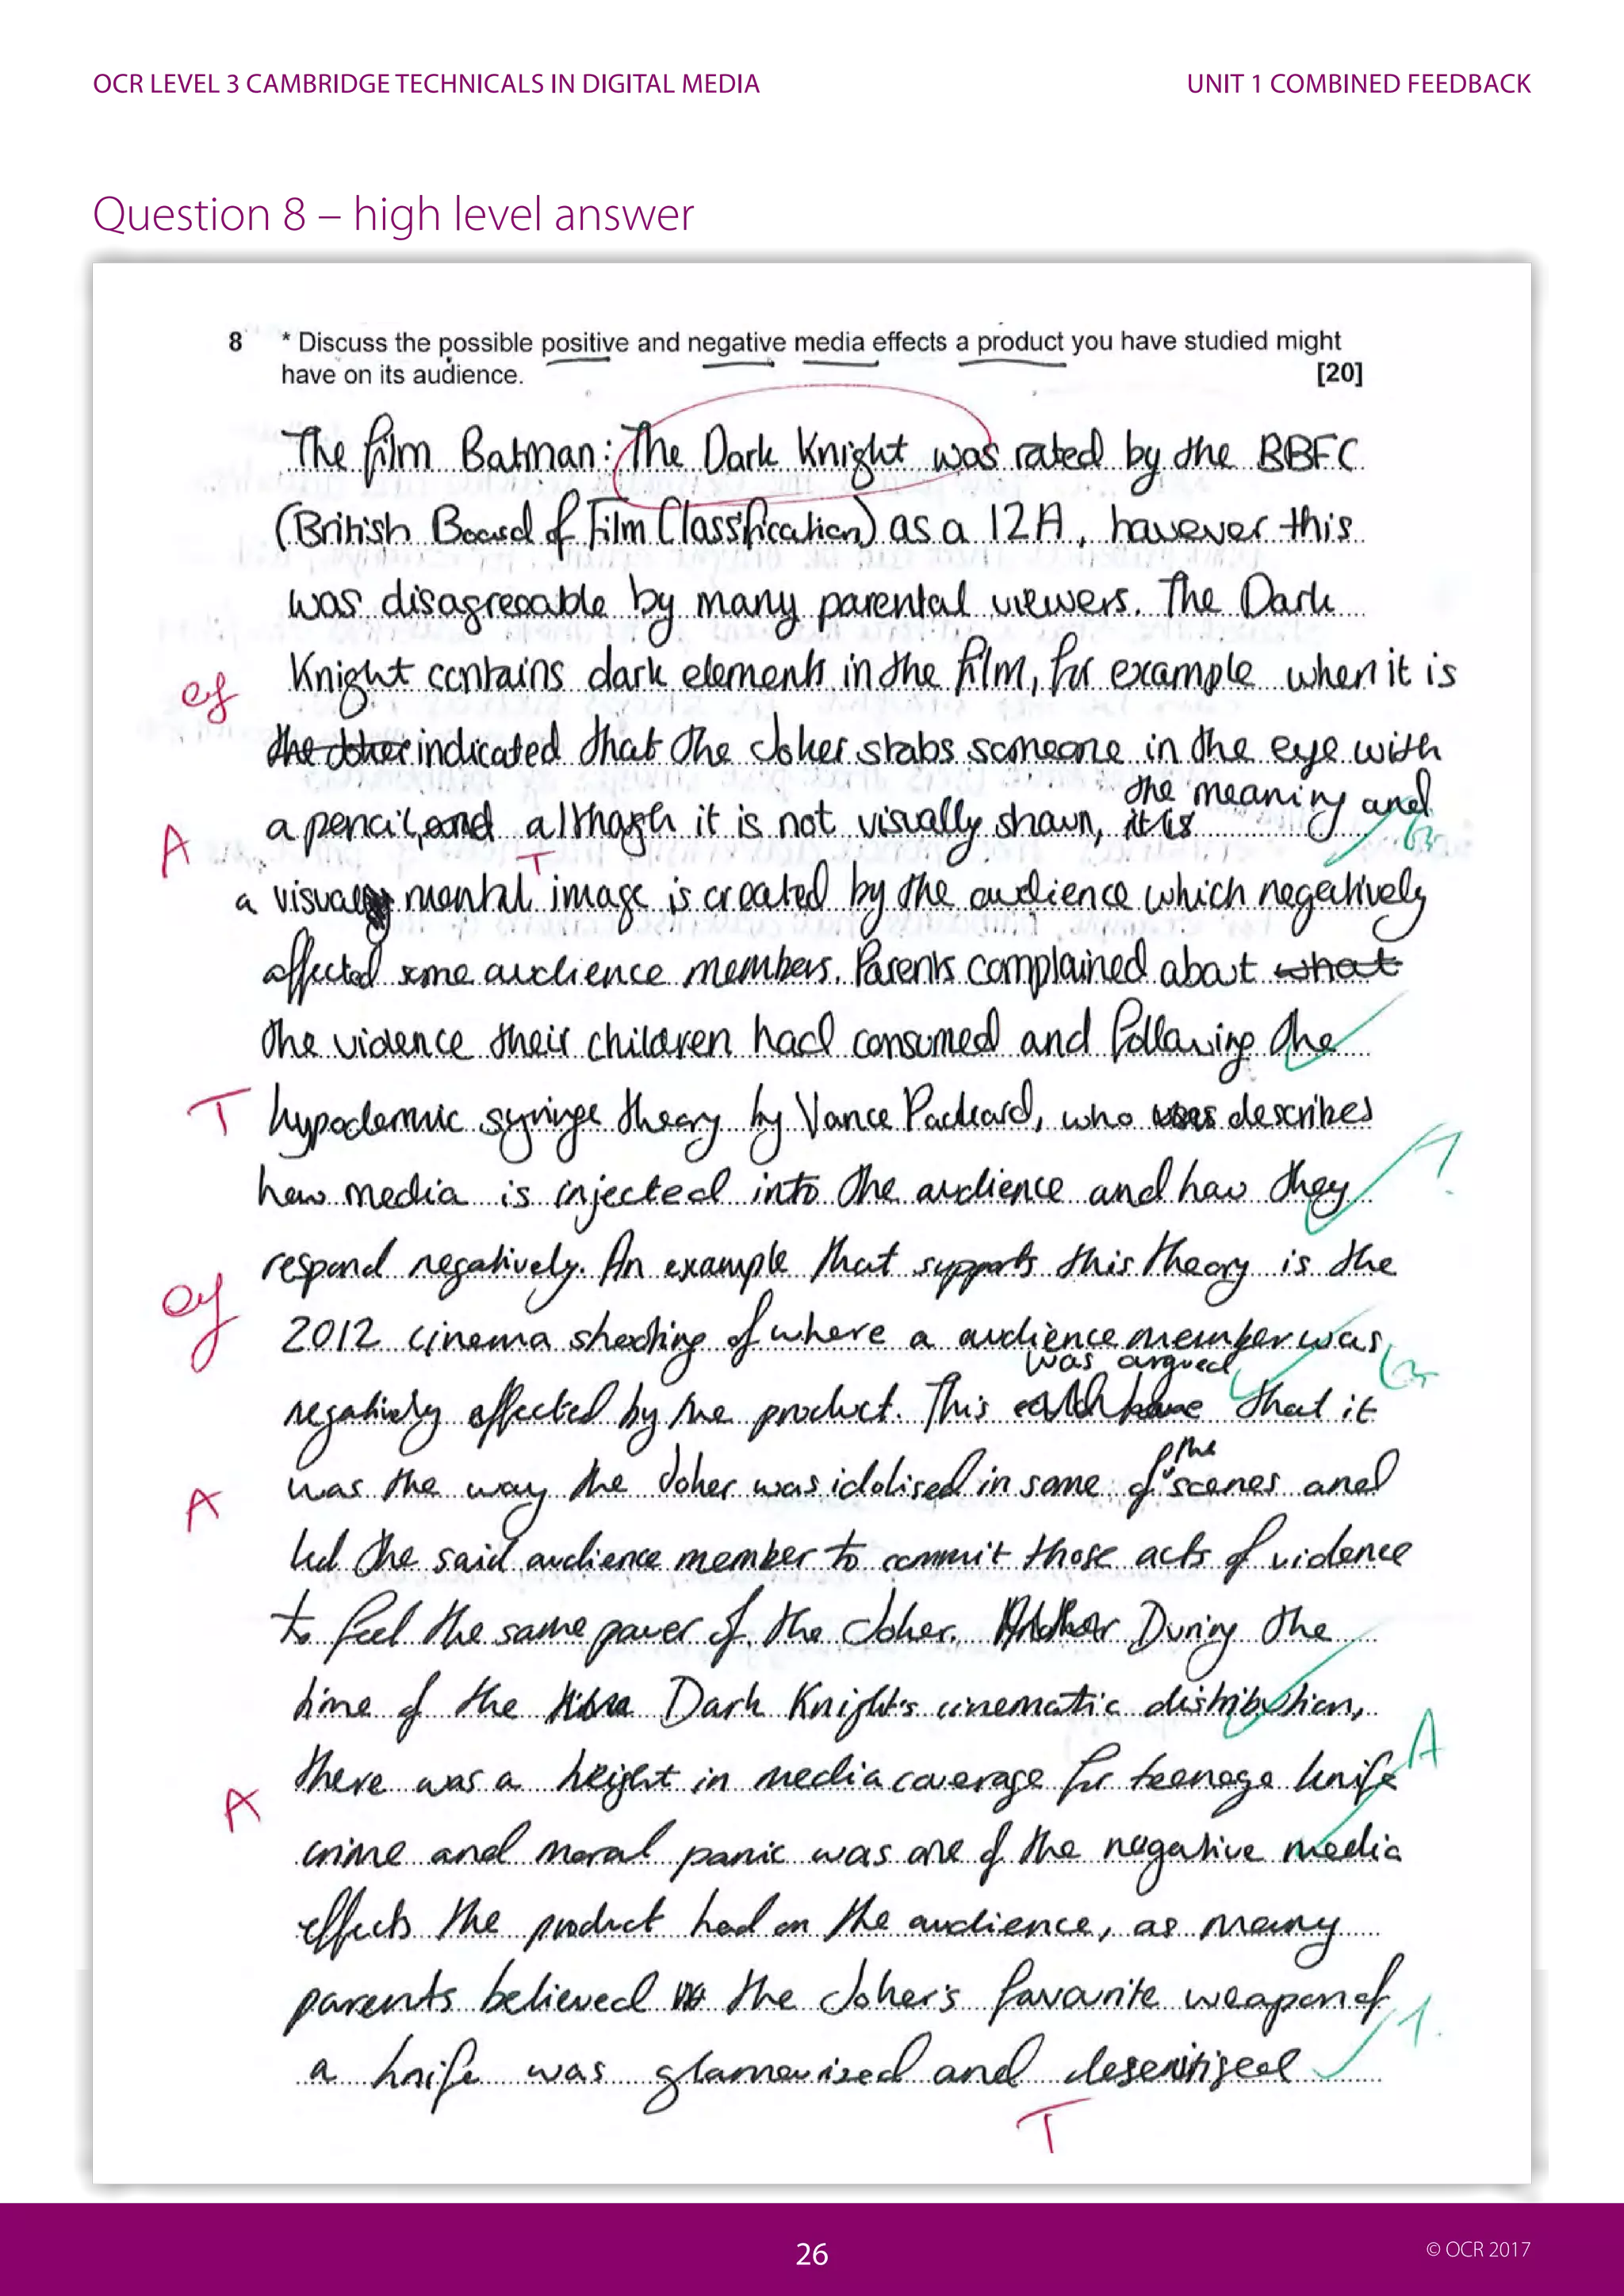 OCR LEVEL 3 CAMBRIDGE TECHNICALS IN DIGITAL MEDIA
UNIT 1 COMBINED FEEDBACK
Question 8 – high level answer
8 * Discuss the possible positive and negative media effects a product you have studied might
have on its audience. [20]
The film Batman: The Dark Knight was rated by the BBFC
(British Board of Film Classification) as a 12A, however this
was disagreeable by many parental viewers. The Dark
eg Knight contains dark elements in the film, for example when it is
the Joker indicated that the Joker stabs someone in the eye with
the meaning and
A a pencil, and although it is not visually shown, it is
T
a visual mental image is created by the audience which negatively
affected some audience members. Parents complained about what
the violence their children had consumed and following the
T hypodermic syringe theory by Vance Packard, who was describes
how media is injected into the audience and how they
respond negatively. An example that supports this theory is the
eg 2012 cinema shooting of where a audience member was
was argued
negatively affected by the product. This could have that it
the
A was the way the Joker was idolised in some of scenes and
led the said audience member to commit those acts of violence
to feel the same power of the Joker. Another During the
time of the Dark Knight's cinematic distribution,
there was a height in media coverage for teenage knife A
A
crime and moral panic was one of the negative media
effects the product had on the audience, as many
parents believed the Joker's favourite weapon of
a knife was glamourized and desenitised
T
26
© OCR 2017